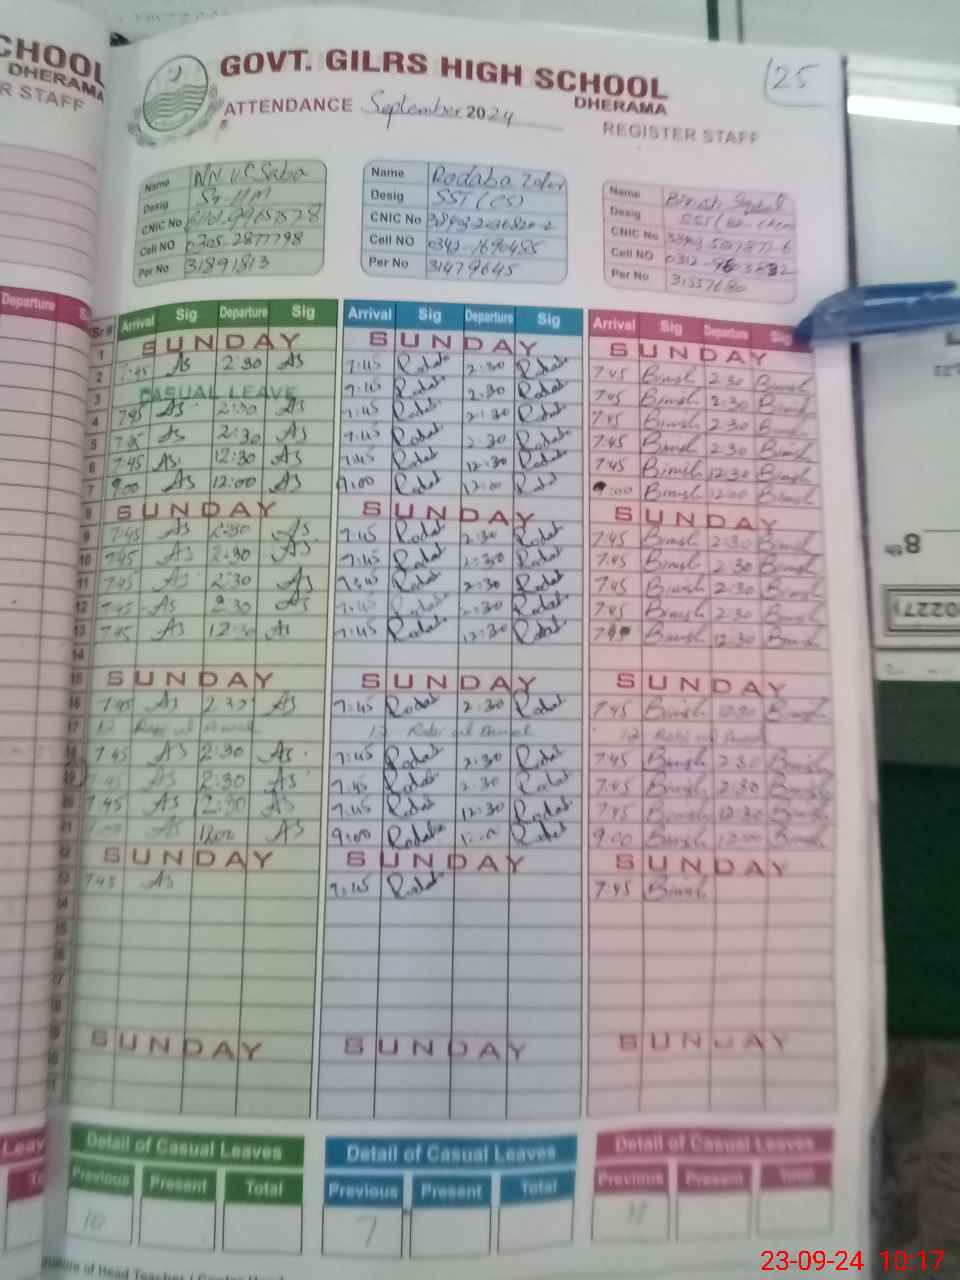 CHOOL
DHERAMA
R STAFF
GOVT. GILRS HIGH SCHOOL
DHERAMA
25
ATTENDANCE September 2024
REGISTER STAFF
Name
Desig
CNIC No
Cell NO 0305-2877798
Per No 31891813
Name Rodaba Zafar
Desig SST (CS)
CNIC No
Cell NO 0342-1690485
Per No 31479645
Name
Desig
CNIC No
Cell NO
Per No 31557680
Departure
Sr # Arrival Sig Departure Sig Arrival Sig Departure Sig Arrival Sig Departure Sig
1 SUNDAY SUNDAY SUNDAY
2 7:45 As 2:30 As 7:45 Rodab 2:30 Rodab 7:45 Binish 2:30 Binish
3 CASUAL LEAVE 7:45 Rodab 2:30 Rodab 7:45 Binish 2:30 Binish
4 7:45 As 2:30 As 7:45 Rodab 2:30 Rodab 7:45 Binish 2:30 Binish
5 7:45 As 2:30 As 7:45 Rodab 2:30 Rodab 7:45 Binish 2:30 Binish
6 7:45 As 12:30 As 7:45 Rodab 12:30 Rodab 7:45 Binish 12:30 Binish
7 9:00 As 12:00 As 9:00 Rodab 12:00 Rodab 9:00 Binish 12:00 Binish
8 SUNDAY SUNDAY SUNDAY
9 7:45 As 2:30 As 7:45 Rodab 2:30 Rodab 7:45 Binish 2:30 Binish
10 7:45 As 2:30 As 7:45 Rodab 2:30 Rodab 7:45 Binish 2:30 Binish
11 7:45 As 2:30 As 7:45 Rodab 2:30 Rodab 7:45 Binish 2:30 Binish
12 7:45 As 2:30 As 7:45 Rodab 2:30 Rodab 7:45 Binish 2:30 Binish
13 7:45 As 12:30 As 7:45 Rodab 12:30 Rodab 7:45 Binish 12:30 Binish
14
15 SUNDAY SUNDAY SUNDAY
16 7:45 As 2:30 As 7:45 Rodab 2:30 Rodab 7:45 Binish Binish
17 12 Rabi ul Awal 12 Rabi ul Awal 12 Rabi ul Awal
18 7:45 As 2:30 As 7:45 Rodab 2:30 Rodab 7:45 Binish 2:30 Binish
19 7:45 As 2:30 As 7:45 Rodab 2:30 Rodab 7:45 Binish 2:30 Binish
20 7:45 As As 7:45 Rodab 12:30 Rodab 7:45 Binish 12:30 Binish
21 As 12:00 As 9:00 Rodab Rodab 9:00 Binish 12:00 Binish
22 SUNDAY SUNDAY SUNDAY
23 7:45 As 7:45 Rodab 7:45 Binish
SUNDAY SUNDAY SUNDAY
Detail of Casual Leaves Detail of Casual Leaves Detail of Casual Leaves
Previous Present Total Previous Present Total Previous Present Total
10 7
Signature of Head Teacher
23-09-24 10:17